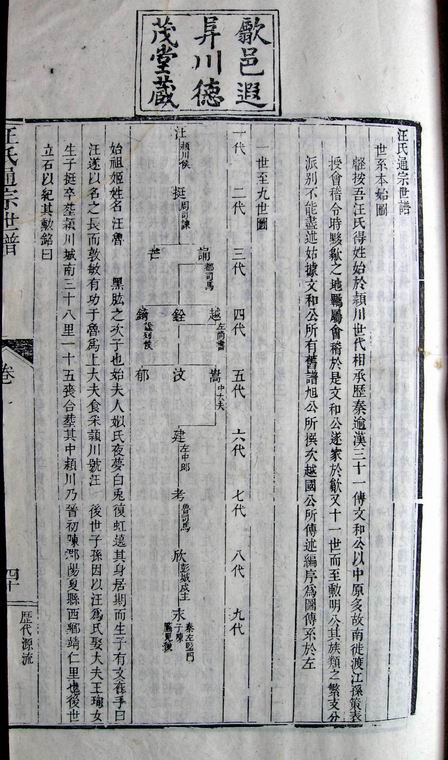 歙邑遐
昇川德
茂堂藏
汪氏通宗世譜
世系本始圖
謹按吾汪氏得姓始於潁川世代相承歷秦逾漢三十一傳文和公以中原多故南徙渡江孫策表
授會稽令時黟歙之地屬會稽於是文和公遂家於歙又十一世而至勲明公其族類之繁支分
派別不能盡述姑據文和公所有舊譜旭公所撰次越國公所傳述編序為圖傳系於左
一世至九世圖
一代 二代 三代 四代 五代 六代 七代 八代 九代
汪 潁川侯
挺 周司諫
誦 都司馬
越 左尚書
銓
嵩 中大夫
汶
郁
建 左中郎
考 魯司馬
欣 彭城成主
秦左監門
始祖姬姓名汪魯
黑肱之次子也始夫人姒氏夜夢白兎復虹遶其身居期而生子有文在手曰
汪遂以名之長而敦敏有功于魯為上大夫食采潁川號汪
後世子孫因以汪為氏娶大夫王瑜女
生子挺卒葬潁川城南三十八里一十五
其中潁川乃
晉初陳
陽夏縣西鄉靖仁里也後世
立石以紀其勲銘曰
汪氏通宗世譜
卷
歷代源流